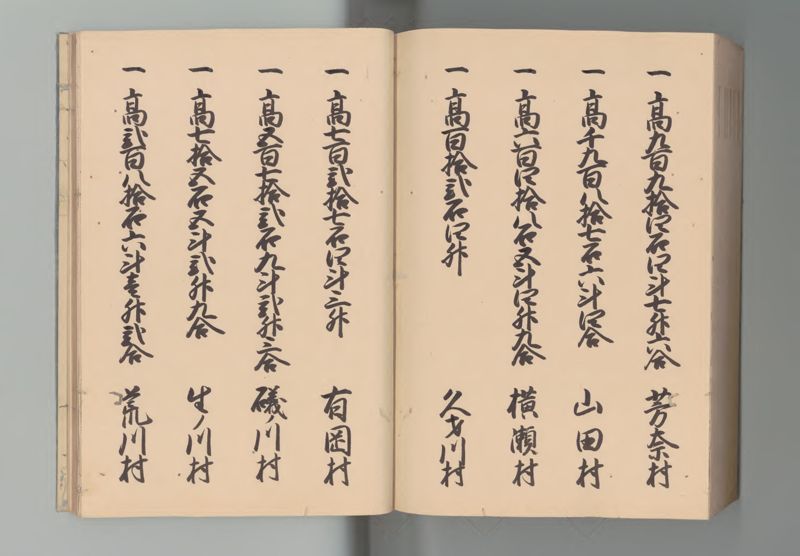 一 高九百九拾四石四斗七升六合 芳奈村
一 高千九百八拾七石六斗四合 山田村
一 高六百四拾八石五斗四升九合 横瀬村
一 高百拾弐石四升 久才川村
一 高七百弐拾七石四斗三升 有岡村
一 高五百七拾弐石九斗弐升三合 磯ノ川村
一 高七拾五石五斗弐升九合 生ノ川村
一 高弐百八拾石六斗壱升弐合 荒川村